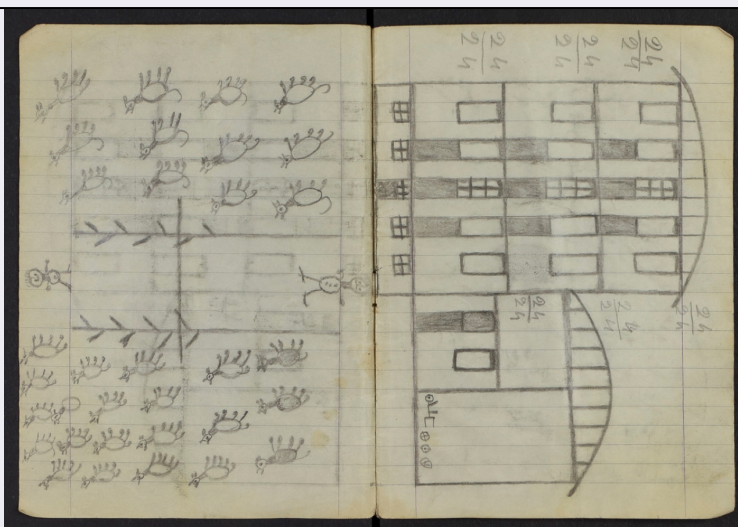 24
24
24
24
24
24
24
24
24
24
24
24